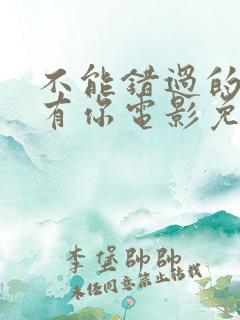 不能错过的
有你电影免
李堡帥帥
未任同意禁止转载